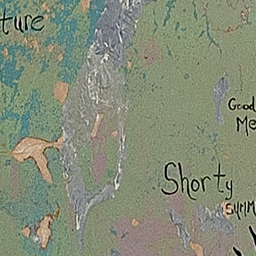 ture
Good
Me
Shorty
summ